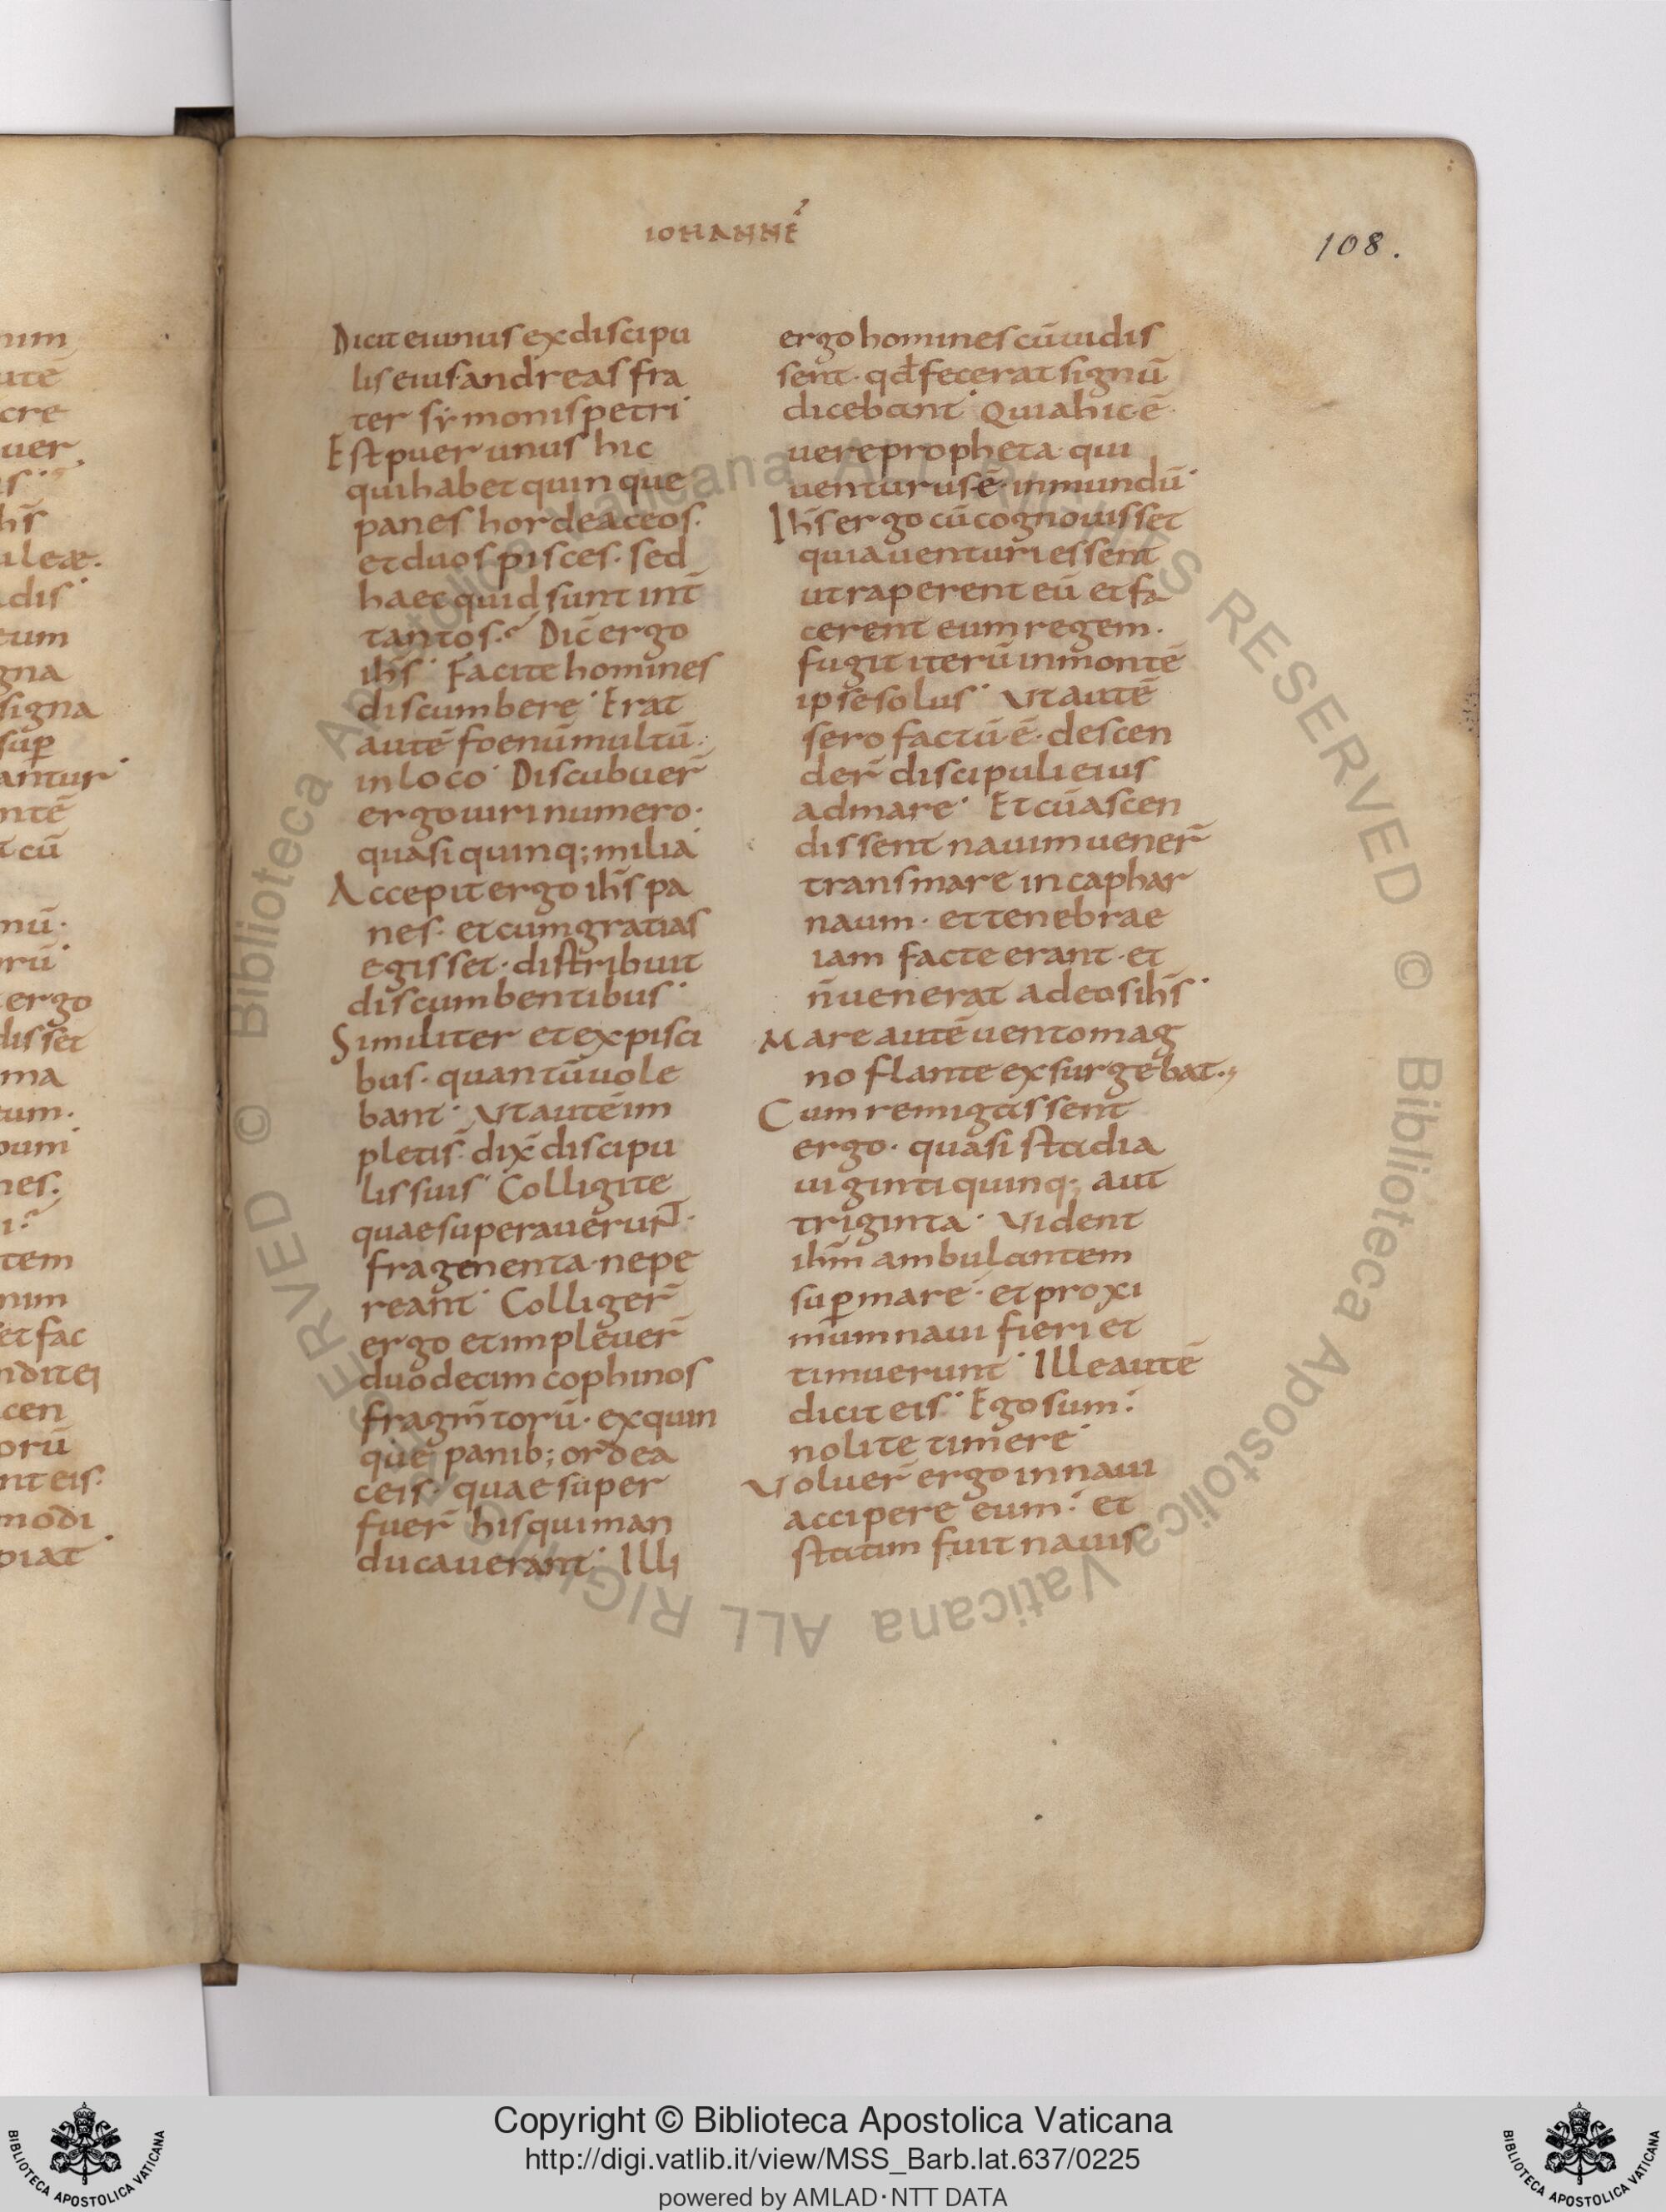 IOHANNĒ
108.
Dicit ei unus ex discipu
lis eius· andreas fra
ter sẏmonis petri·
Est puer unus hic
qui habet quinque
panes hordeaceos·
et duos pisces· sed
haec quid sunt int̄
tantos·? Dic̄ ergo
ih̄s· Facite homines
discumbere· Erat
autē foenū multū·
in loco· Discubuer̄
ergo uiri numero·
quasi quinq; milia·
Accepit ergo ih̄s pa
nes· et cum gratias
egisset· distribuit
discumbentibus·
Similiter et ex pisci
bus· quantū uole
bant· Ut autē im
pleti s̄· dix̄ discipu
lis suis· Colligite
quae superauerunt·
fragmenta· ne pe
reant· Colliger̄
ergo et impleuer̄
duodecim cophinos
fragm̄torū· ex quin
que panib; ordea
ceis· quae super
fuer̄ his qui man
ducauerant· Illi
ergo homines cū uidis
sent· qd̄ fecerat signū
dicebant· Quia hic ē·
uere propheta· qui
uenturus ē· in mundū·
Ih̄s ergo cū cognouisset
quia uenturi essent
ut raperent eū et fa
cerent eum regem·
fugit iterū in montē
ipse solus· Ut autē
sero factū ē· descen
der̄ discipuli eius
ad mare· Et cū ascen
dissent nauim uener̄
trans mare in caphar
naum· et tenebrae
iam facte erant· et
n̄ uenerat ad eos ih̄s·
Mare autē uento mag
no flante exsurgebat·,
Cum remigassent
ergo· quasi stadia
uiginti quinq; aut
triginta· Uident
ih̄m ambulantem
sup̄ mare· et proxi
mum naui fieri et
timuerunt· Ille autē
dicit eis· Ego sum·
nolite timere·
Uoluer̄ ergo in naui
accipere eum· et
statim fuit nauis
Copyright © Biblioteca Apostolica Vaticana
http://digi.vatlib.it/view/MSS_Barb.lat.637/0225
powered by AMLAD·NTT DATA